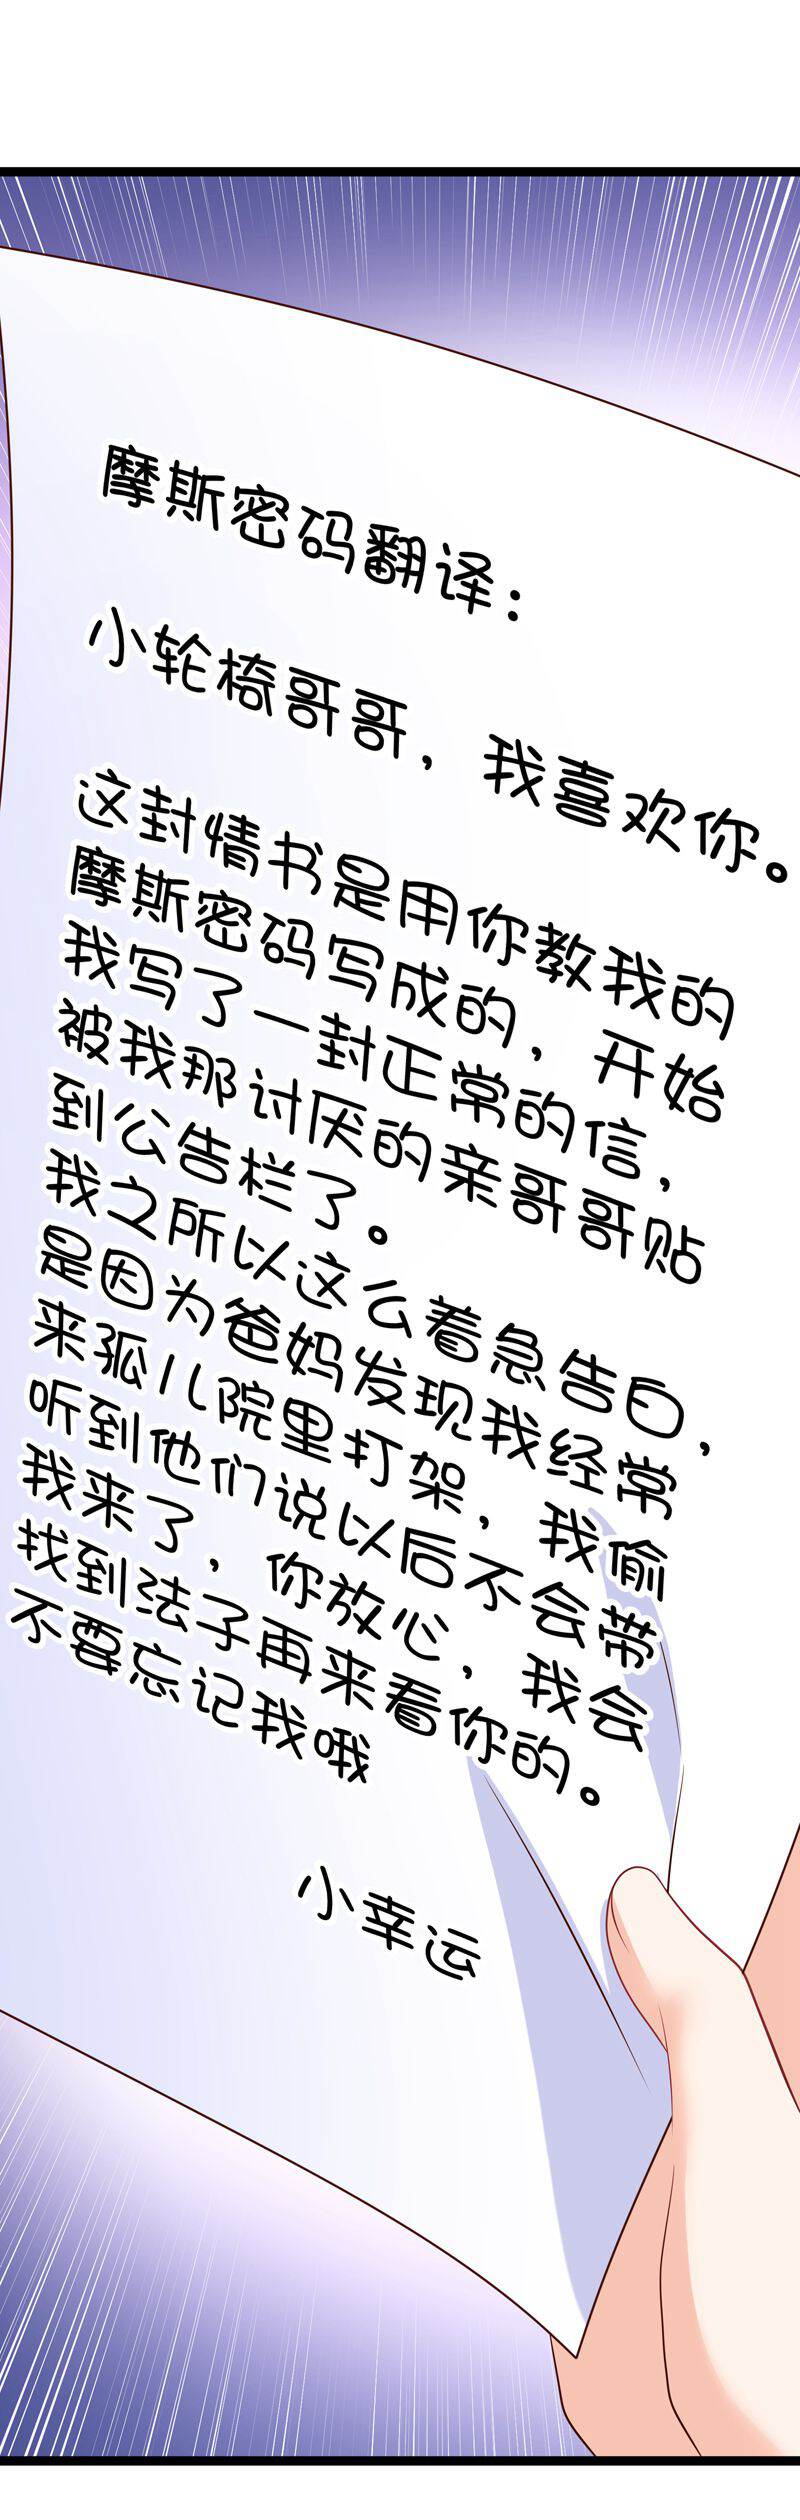 摩斯密码翻译：
小轮椅哥哥，我喜欢你。
这封情书是用你教我的
摩斯密码写成的，开始
我写了一封正常的信，
被我那讨厌的亲哥哥贴
到公告栏了。
我之所以这么着急告白，
是因为爸妈发现我经常
来孤儿院里打架，我偷
听到他们说以后不会带
我来了，你放心，我会
找到法子再来看你的。
不要忘记我哦
小幸运